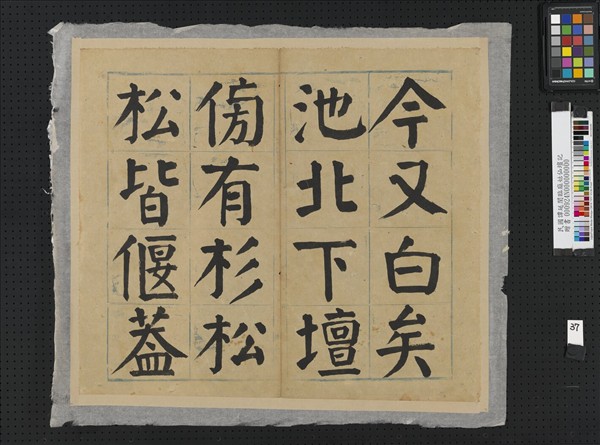 今又白矣
池北下壇
傍有杉松
松皆偃葢
37